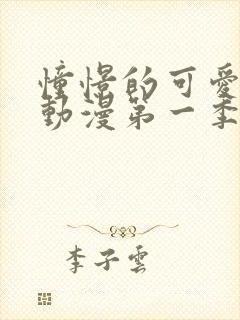 憧憬的可愛
動漫第一季
李子雲